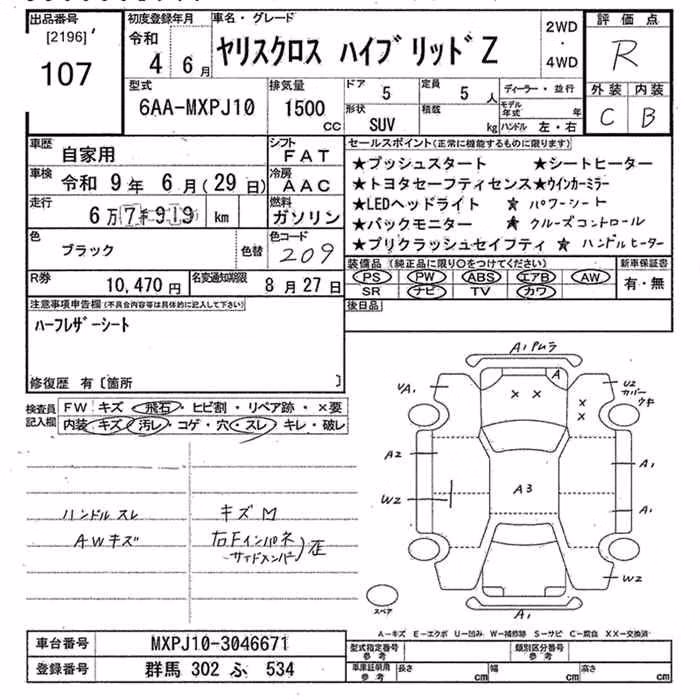 出品番号
[2196]
107
初度登録年月
令和 4 6月
車名・グレード
ヤリスクロス ハイブリッドZ
2WD
・
4WD
評価点
R
外装 内装
C B
型式
6AA-MXPJ10
排気量
1500
CC
ドア 5
定員 5 人
形状 SUV
積載 kg
ディーラー・並行
モデル年式 年
ハンドル 左・右
車歴 自家用
シフト FAT
車検 令和 9年 6月(29日)
冷房 AAC
走行 6万7千919 km
燃料 ガソリン
色 ブラック
色替
色コード 209
R券 10,470円
名変通知期限 8月27日
セールスポイント(正常に機能するものに限ります)
★プッシュスタート ★シートヒーター
★トヨタセーフティセンス★ウインカーミラー
★LEDヘッドライト ★パワーシート
★バックモニター ★クルーズコントロール
★プリクラッシュセイフティ ★ハンドルヒーター
装備品(純正品に限り○をつけてください)
PS PW ABS エアB AW
SR ナビ TV カワ
新車保証書
有・無
後日品
注意事項申告欄(不具合内容等は具体的に記入して下さい)
ハーフレザーシート
修復歴 有〔箇所 〕
検査員記入欄
FW キズ・飛石・ヒビ割・リペア跡・×要
内装 キズ・汚レ・コゲ・穴・スレ・キレ・破レ
ハンドル スレ
AWキズ
キズM
右Fインパネ
サイドメンバー)歪
A1 Pムラ
A
× ×
×
×
UA1
U2
カバーウキ
A2
W2
A3
A1
A1
W2
A1
スペア
A-キズ E-エクボ U-凹み W-補修跡 S-サビ C-腐食 XX-交換済
車台番号 MXPJ10-3046671
登録番号 群馬 302 ふ 534
型式指定番号 参考
類別区分番号 参考
車庫証明用 参考
長さ cm
幅 cm
高さ cm